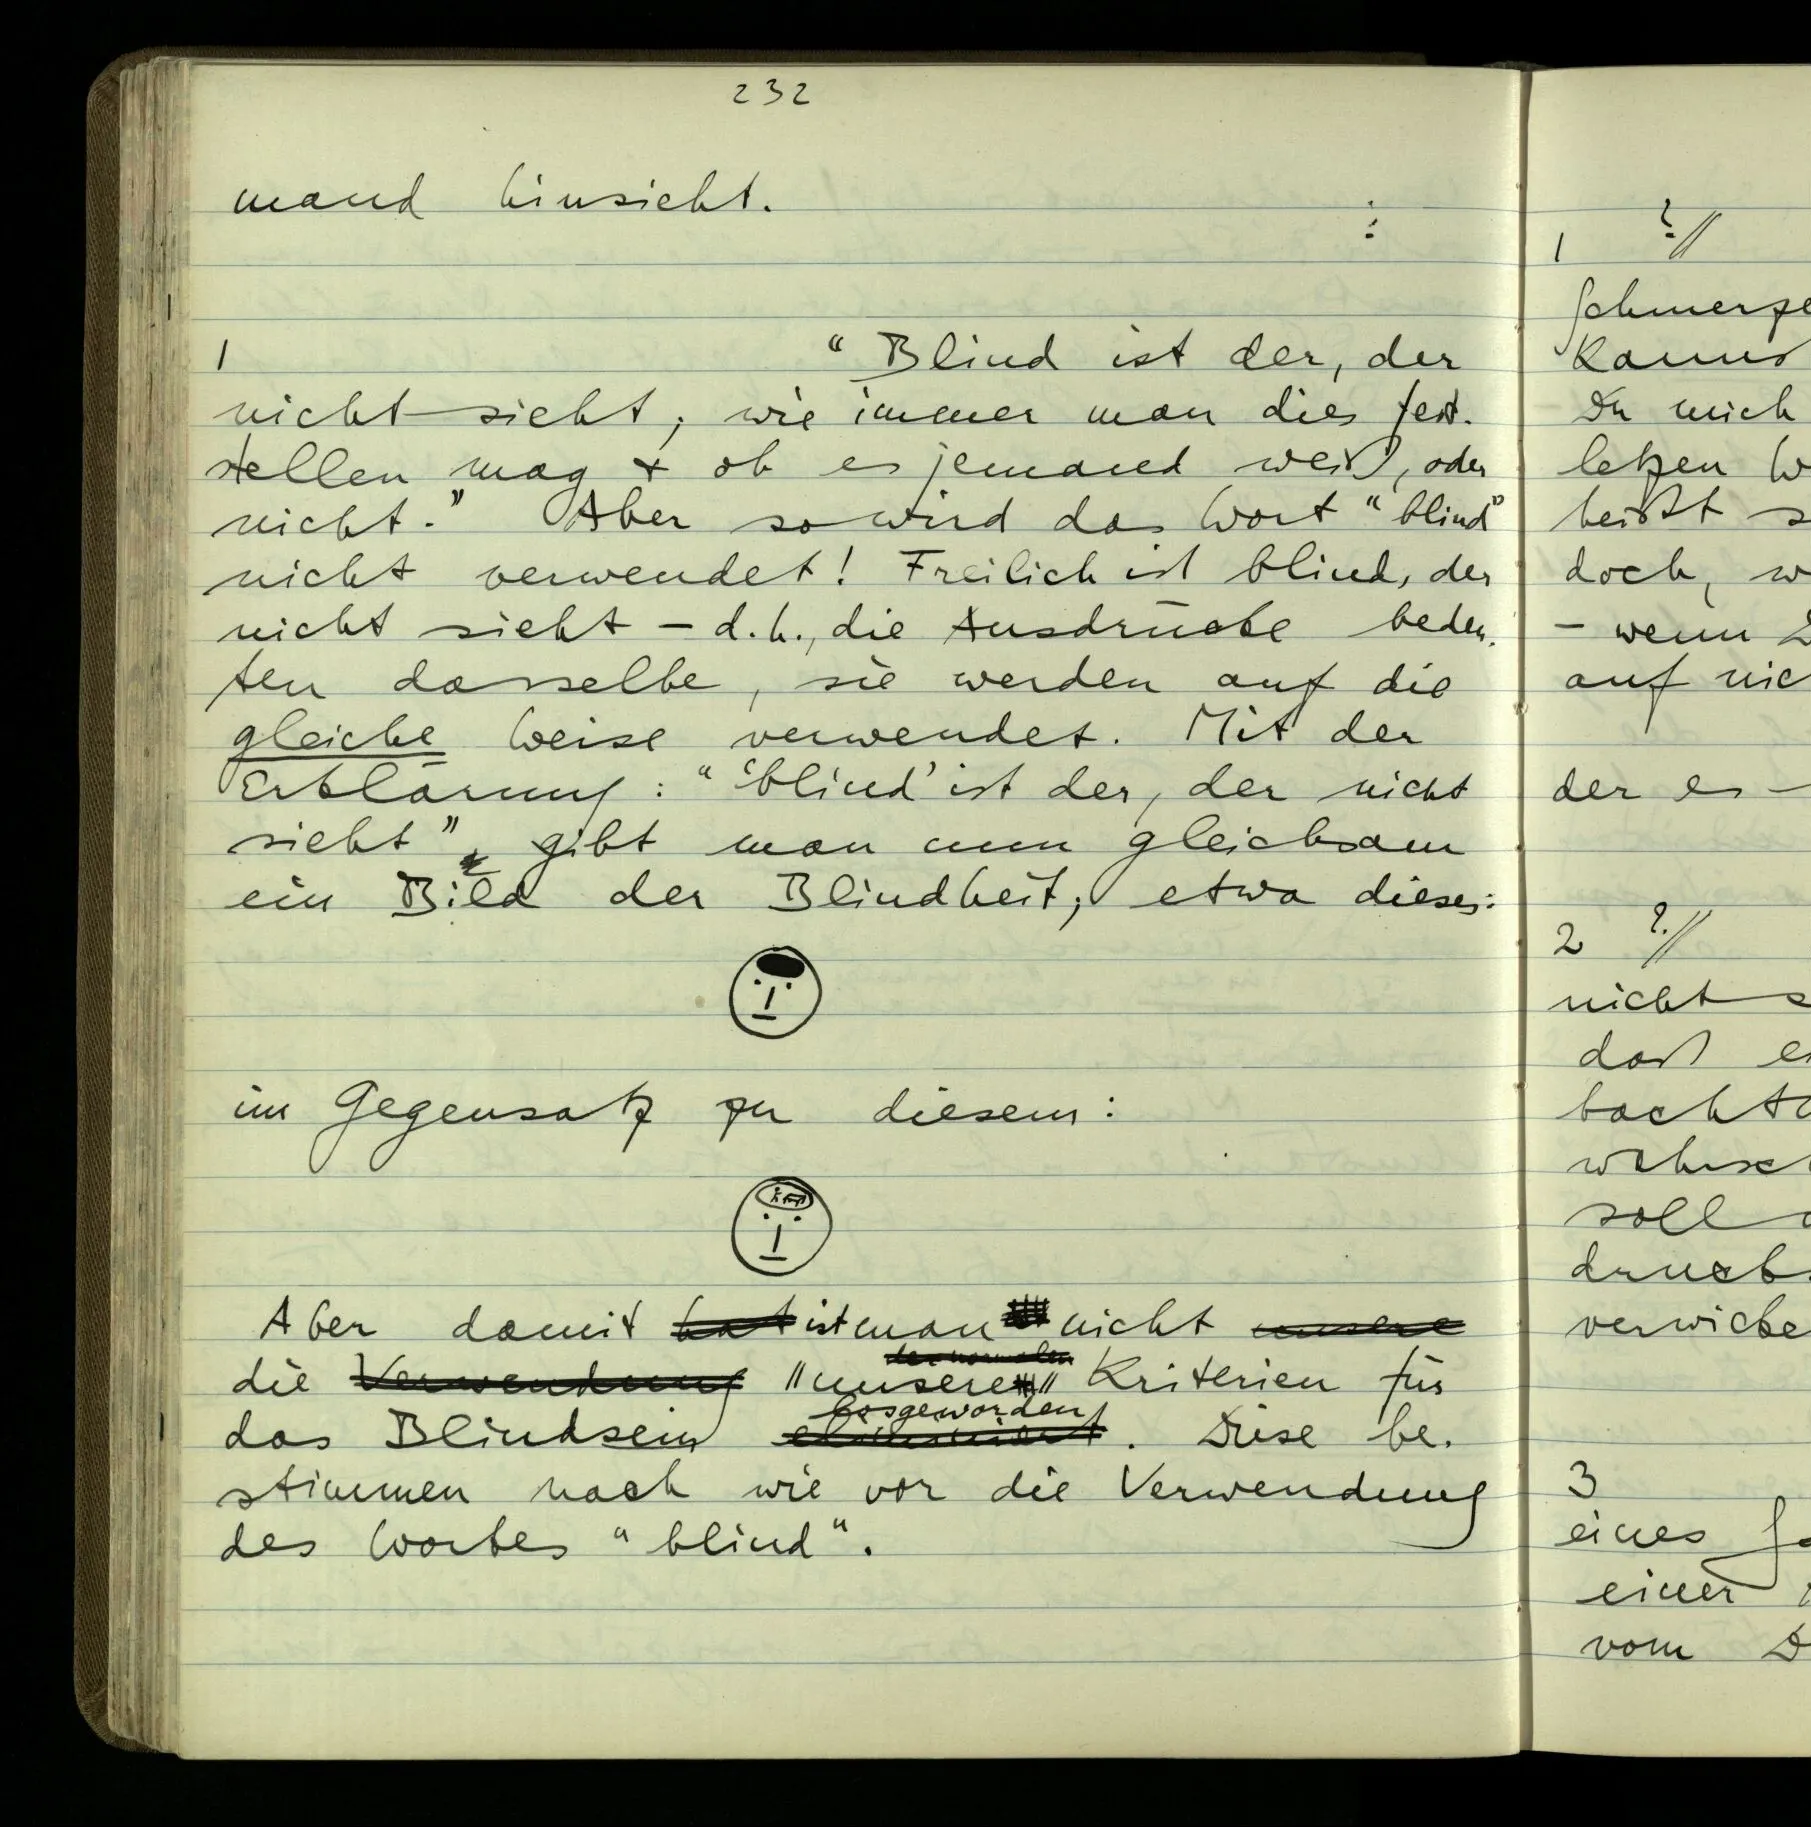 232
mand hinsieht.
:
1
"Blind ist der, der
nicht sieht; wie immer man dies fest-
stellen mag + ob es jemand weiß, oder
nicht." Aber so wird das Wort "blind"
nicht verwendet! Freilich ist blind, der
nicht sieht – d.h., die Ausdrücke bedeu-
ten dasselbe, sie werden auf die
gleiche Weise verwendet. Mit der
Erklärung: "'blind' ist der, der nicht
sieht", gibt man nun gleichsam
ein Bild der Blindheit; etwa dieses:
im Gegensatz zu diesem:
Aber damit hat ist man nicht unsere
der normalen
die Verwendung "unsere" Kriterien für
losgeworden
das Blindsein eliminiert. Diese be-
stimmen nach wie vor die Verwendung
des Wortes "blind".
1 ?//
Schmerze
Kannst
Du mich
letzen W
heißt s
doch, w
– wenn D
auf nic
der es –
2 ?//
nicht s
daß e
bachtu
soll
drucks
verwicke
3
eines
einer
vom D